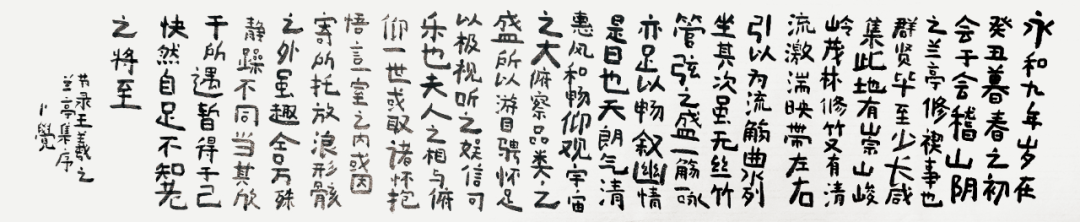 永和九年岁在
癸丑暮春之初
会于会稽山阴
之兰亭修禊事也
群贤毕至少长咸
集此地有崇山峻
岭茂林修竹又有清
流激湍映带左右
引以为流觞曲水列
坐其次虽无丝竹
管弦之盛一觞一咏
亦足以畅叙幽情
是日也天朗气清
惠风和畅仰观宇宙
之大俯察品类之
盛所以游目骋怀足
以极视听之娱信可
乐也夫人之相与俯
仰一世或取诸怀抱
悟言一室之内或因
寄所托放浪形骸
之外虽趣舍万殊
静躁不同当其欣
于所遇暂得于己
快然自足不知老
之将至
节录王羲之
兰亭集序
卜觉